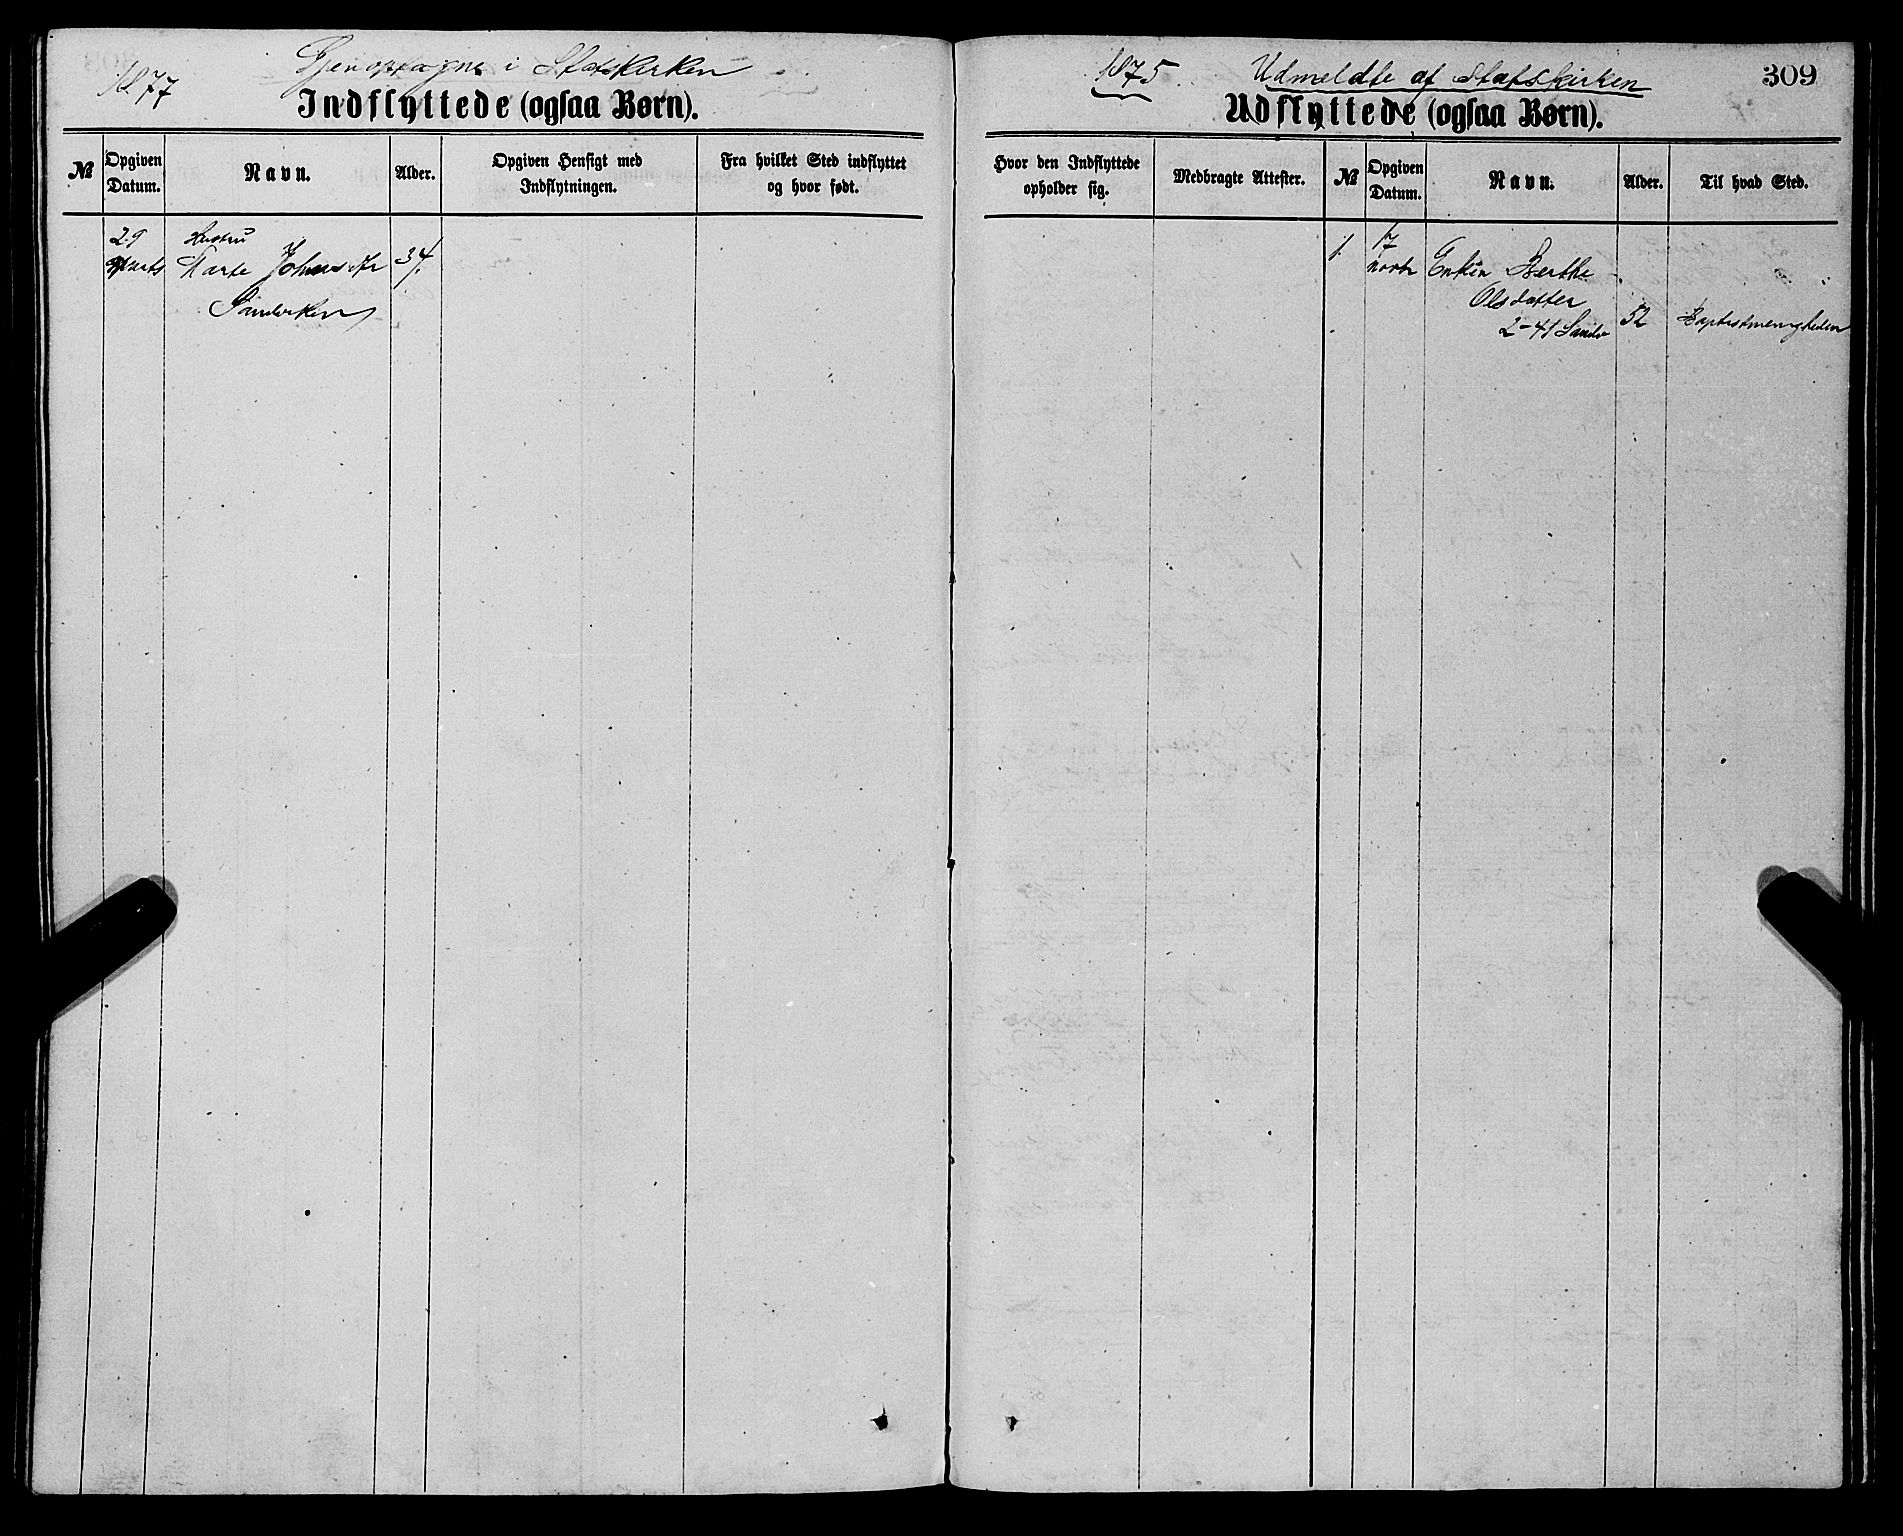 1877
Gjenoptagne i Statskirken
Indflyttede (ogsaa Børn).
№
Opgiven Datum.
Navn.
Alder.
Opgiven Hensigt med Indflytningen.
Fra hvilket Sted indflyttet og hvor født.
29
Hustru
Marte Johnsdtr 34
1875
Udmeldte af Statskirken
309
Udflyttede (ogsaa Børn).
Hvor den Indflyttede opholder sig.
Medbragte Attester.
№
Opgiven Datum.
Navn.
Alder.
Til hvad Sted.
1. 17
novbr Enken Berthe
Olsdatter
2-41 52 Baptistmenigheden